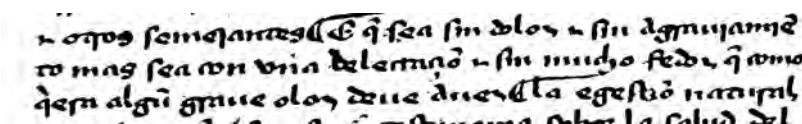 ⁊ otros semejantes ¶ E q̄ sea sin dolor ⁊ sin agrauiamiē
to mas sea con vna delectaçiō ⁊ sin mucho fedor, q̄ como
q̄era algū graue olor deue auer ¶ la egestiō natural
sobre la salud del